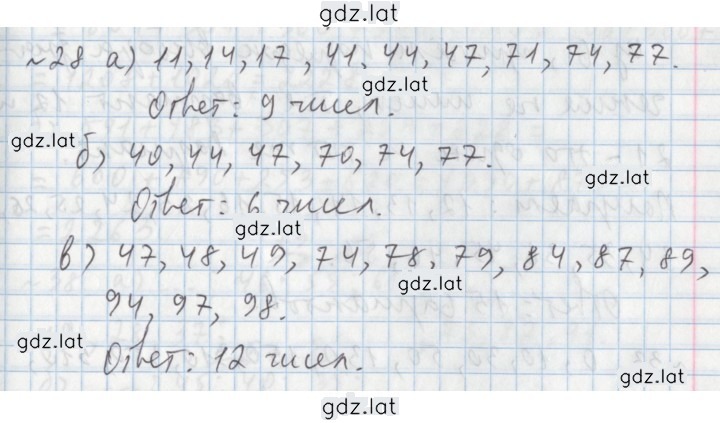 gdz.lat
№28 а) 11, 14, 17, 41, 44, 47, 71, 74, 77.
gdz.lat
Ответ: 9 чисел.
gdz.lat
б) 40, 44, 47, 70, 74, 77.
gdz.lat
Ответ: 6 чисел.
gdz.lat
в) 47, 48, 49, 74, 78, 79, 84, 87, 89,
gdz.lat
94, 97, 98.
gdz.lat
Ответ: 12 чисел.
gdz.lat
gdz.lat